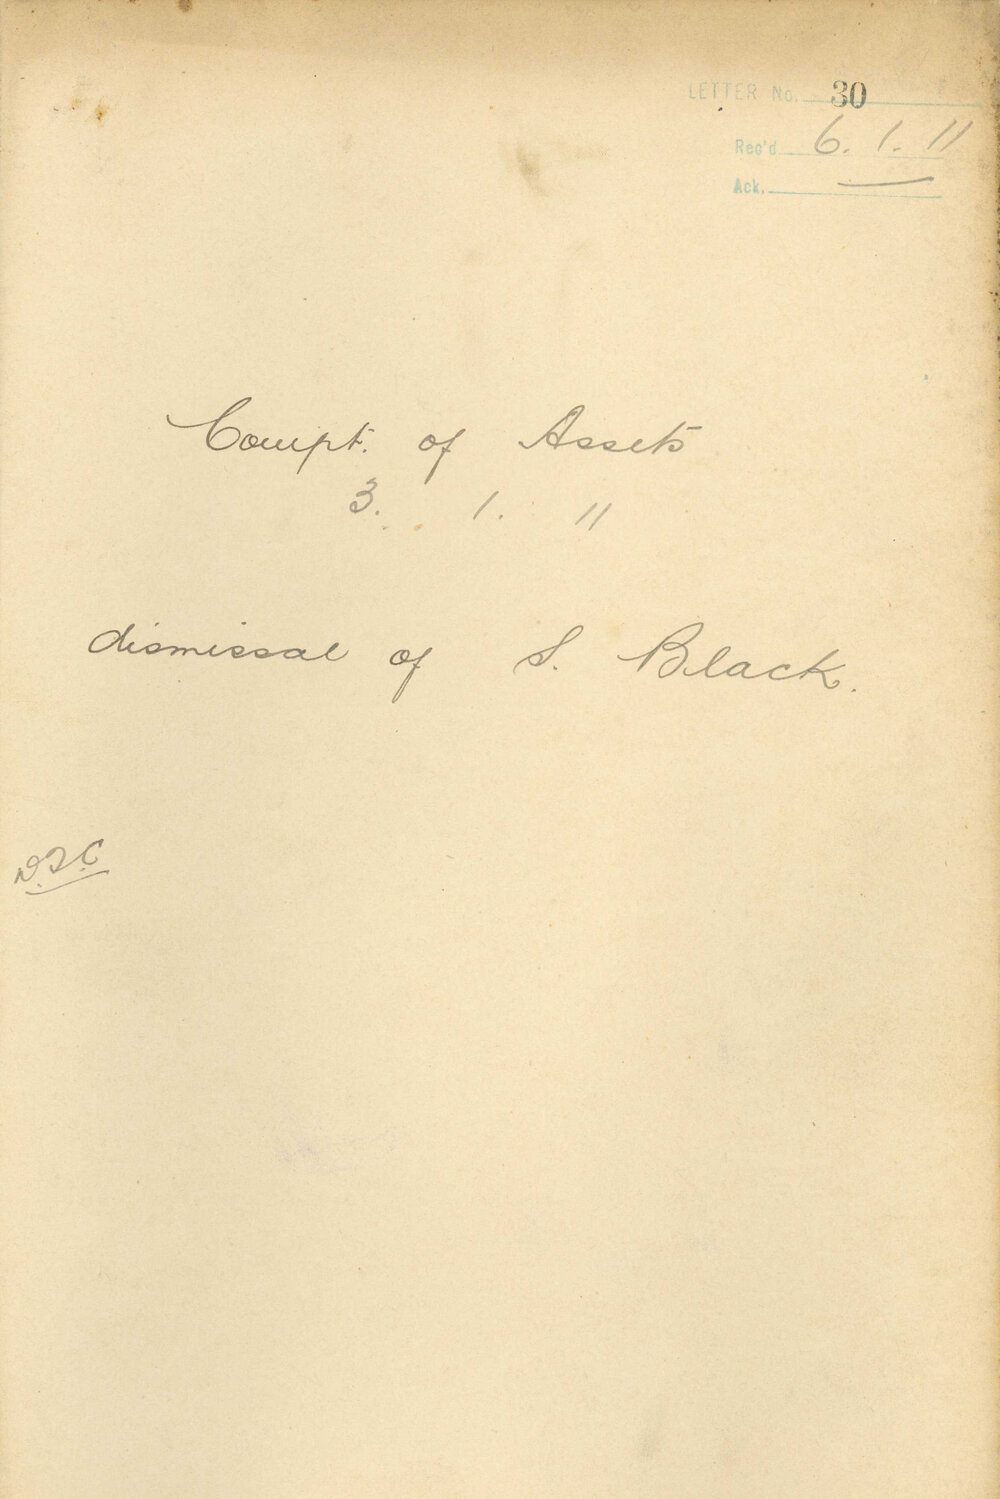 LETTER No. 30
Rec'd 6. 1. 11
Ack. —
Compt. of Assets
3. 1. 11
dismissal of S. Black.